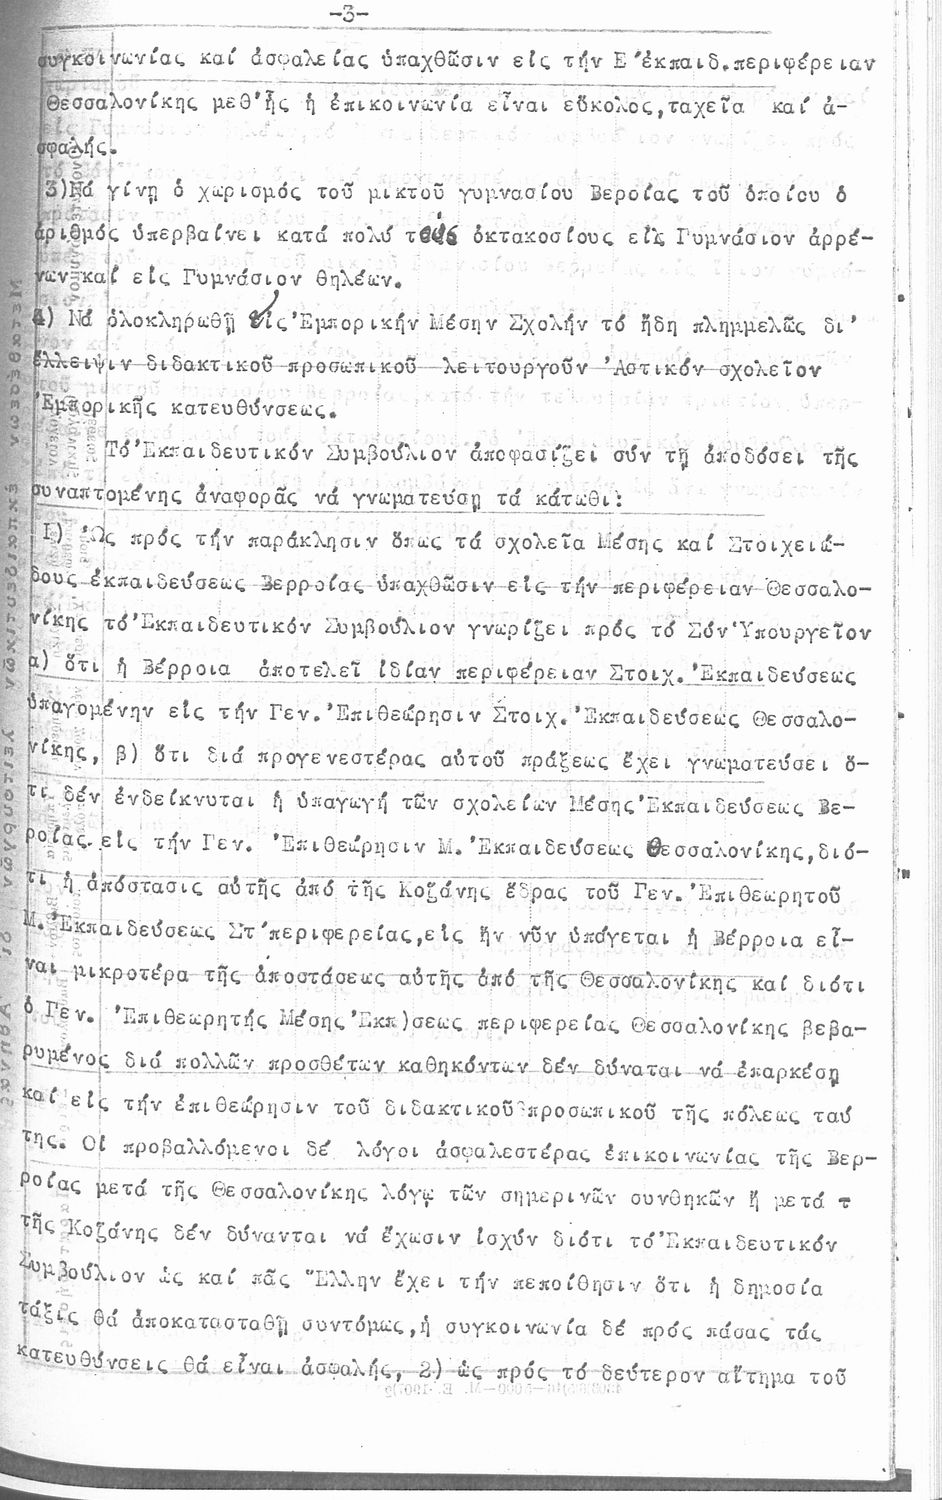 -3-
συγκοινωνίας καί ἀσφαλείας ὑπαχθῶσιν εἰς τήν Ε΄ἐκπαιδ.περιφέρειαν
Θεσσαλονίκης μεθ'ἧς ἡ ἐπικοινωνία εἶναι εὔκολος,ταχεῖα καί ἀ-
σφαλής.
3)Νά γίνῃ ὁ χωρισμός τοῦ μικτοῦ γυμνασίου Βεροίας τοῦ ὁποίου ὁ
ἀριθμός ὑπερβαίνει κατά πολύ τούς ὀκτακοσίους εἰς Γυμνάσιον ἀρρέ-
νων καί εἰς Γυμνάσιον θηλέων.
4) Νά ὁλοκληρωθῇ εἰς Ἐμπορικήν Μέσην Σχολήν τό ἤδη πλημμελῶς δι'
ἔλλειψιν διδακτικοῦ προσωπικοῦ λειτουργοῦν Ἀστικόν σχολεῖον
Ἐμπορικῆς κατευθύνσεως.
Τό Ἐκπαιδευτικόν Συμβούλιον ἀποφασίζει σύν τῇ ἀποδόσει τῆς
συναπτομένης ἀναφορᾶς νά γνωματεύσῃ τά κάτωθι:
Ι) Ὡς πρός τήν παράκλησιν ὅπως τά σχολεῖα Μέσης καί Στοιχειώ-
δους ἐκπαιδεύσεως Βερροίας ὑπαχθῶσιν εἰς τήν περιφέρειαν Θεσσαλο-
νίκης τό Ἐκπαιδευτικόν Συμβούλιον γνωρίζει πρός τό Σόν Ὑπουργεῖον
α) ὅτι ἡ Βέρροια ἀποτελεῖ ἰδίαν περιφέρειαν Στοιχ. Ἐκπαιδεύσεως
ὑπαγομένην εἰς τήν Γεν. Ἐπιθεώρησιν Στοιχ. Ἐκπαιδεύσεως Θεσσαλο-
νίκης, β) ὅτι διά προγενεστέρας αὐτοῦ πράξεως ἔχει γνωματεύσει ὅ-
τι δέν ἐνδείκνυται ἡ ὑπαγωγή τῶν σχολείων Μέσης Ἐκπαιδεύσεως Βε-
ροίας εἰς τήν Γεν. Ἐπιθεώρησιν Μ. Ἐκπαιδεύσεως Θεσσαλονίκης,διό-
τι ἡ ἀπόστασις αὐτῆς ἀπό τῆς Κοζάνης ἕδρας τοῦ Γεν. Ἐπιθεωρητοῦ
Μ. Ἐκπαιδεύσεως Στ΄περιφερείας,εἰς ἥν νῦν ὑπάγεται ἡ Βέρροια εἶ-
ναι μικροτέρα τῆς ἀποστάσεως αὐτῆς ἀπό τῆς Θεσσαλονίκης καί διότι
ὁ Γεν. Ἐπιθεωρητής Μέσης Ἐκπ)σεως περιφερείας Θεσσαλονίκης βεβα-
ρυμένος διά πολλῶν προσθέτων καθηκόντων δέν δύναται νά ἐπαρκέσῃ
καί εἰς τήν ἐπιθεώρησιν τοῦ διδακτικοῦ προσωπικοῦ τῆς πόλεως ταύ
της. Οἱ προβαλλόμενοι δέ λόγοι ἀσφαλεστέρας ἐπικοινωνίας τῆς Βερ-
ροίας μετά τῆς Θεσσαλονίκης λόγῳ τῶν σημερινῶν συνθηκῶν ἤ μετά τ
τῆς Κοζάνης δέν δύνανται νά ἔχωσιν ἰσχύν διότι τό Ἐκπαιδευτικόν
Συμβούλιον ὡς καί πᾶς Ἕλλην ἔχει τήν πεποίθησιν ὅτι ἡ δημοσία
τάξις θά ἀποκατασταθῇ συντόμως,ἡ συγκοινωνία δέ πρός πάσας τάς
κατευθύνσεις θά εἶναι ἀσφαλής, 2) ὡς πρός τό δεύτερον αἴτημα τοῦ